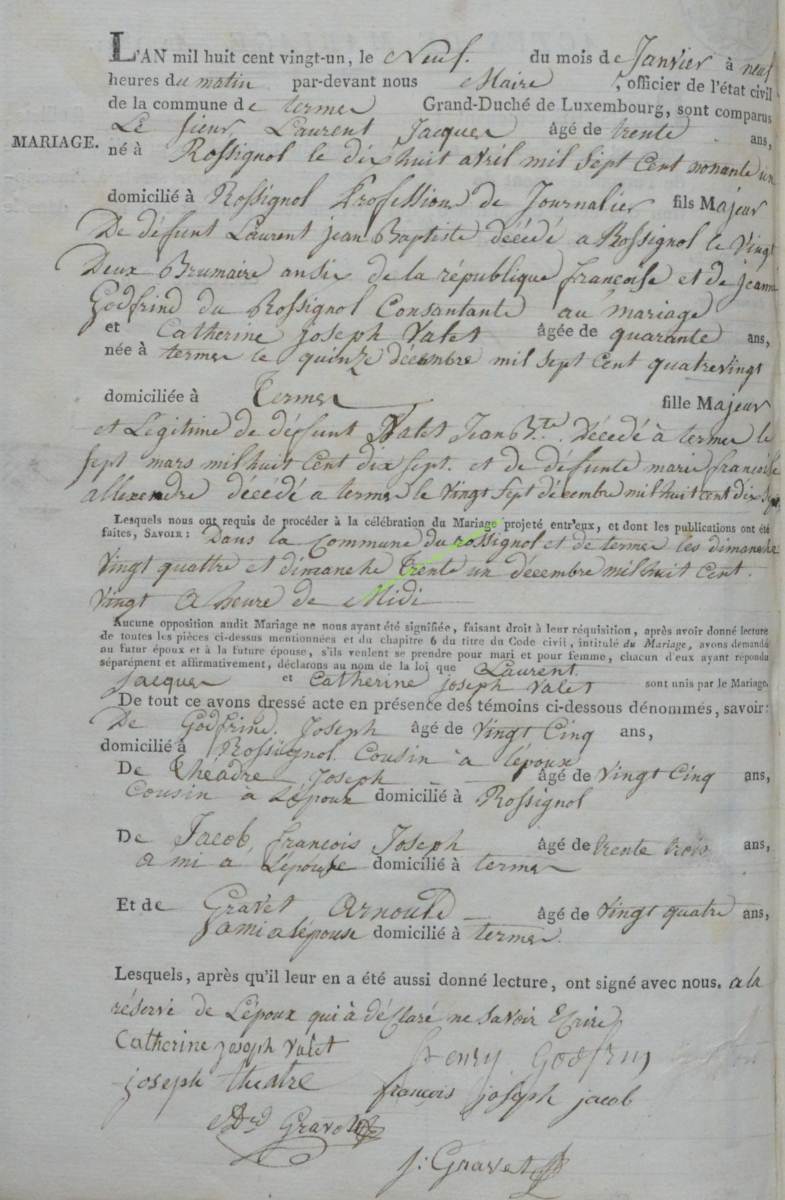 L'AN mil huit cent vingt-un, le Neuf. du mois de Janvier à neuf
heures du matin par-devant nous Maire , officier de l'état civil
de la commune de termes Grand-Duché de Luxembourg, sont comparus
MARIAGE.
Le sieur Laurent Jacques âgé de trente ans,
né à Rossignol le dix huit avril mil sept cent nonante un
domicilié à Rossignol Profession de Journalier fils Majeur
De défunt Laurent jean Baptiste décédé a Rossignol le vingt
Deux Brumaire an six de la république francoise et de jeanne
Godfrind du Rossignol Consantante au mariage
et Catherine joseph Valet âgée de quarante ans,
née à termes le quinze décembre mil sept cent quatrevingt
domiciliée à Termes fille Majeur
et Légitime de défunt Valet Jean Bte. Décedé à termes le
sept mars mil huit Cent dix sept. et de défunte marie francoise
allexendre décédé a termes le vingt sept décembre mil huit cent dix sept
Lesquels nous ont requis de procéder à la célébration du Mariage projeté entr'eux, et dont les publications ont été
faites, SAVOIR : Dans la Commune du rossignol et de termes les dimanche
vingt quattre et dimanche trente un décembre mil huit Cent.
vingt a heure de Midi
Aucune opposition audit Mariage ne nous ayant été signifiée, faisant droit à leur réquisition, après avoir donné lecture
de toutes les pièces ci-dessus mentionnées et du chapitre 6 du titre du Code civil, intitulé du Mariage, avons demandé
au futur époux et à la future épouse, s'ils veulent se prendre pour mari et pour femme, chacun d'eux ayant répondu
séparément et affirmativement, déclarons au nom de la loi que Laurent
Jacques et Catherine joseph Valet sont unis par le Mariage.
De tout ce avons dressé acte en présence des témoins ci-dessous dénommés, savoir:
De Godfrind. Joseph âgé de vingt Cinq ans,
domicilié à Rossignol Cousin à lépoux
De théâdre Joseph âgé de vingt Cinq ans,
Cousin à Lépoux domicilié à Rossignol
De Jacob, francois Joseph âgé de trente trois ans,
ami a Lépouse domicilié à termes
Et de Gravet Arnould âgé de vingt quatre ans,
ami a lépouse domicilié à termes.
Lesquels, après qu'il leur en a été aussi donné lecture, ont signé avec nous. a la
réserve de Lépoux qui à déClaré ne savoir Ecrire
Catherine joseph Valet
henry Godfrin
joseph theatre
françois joseph jacob
Ard Gravet
j: Gravet